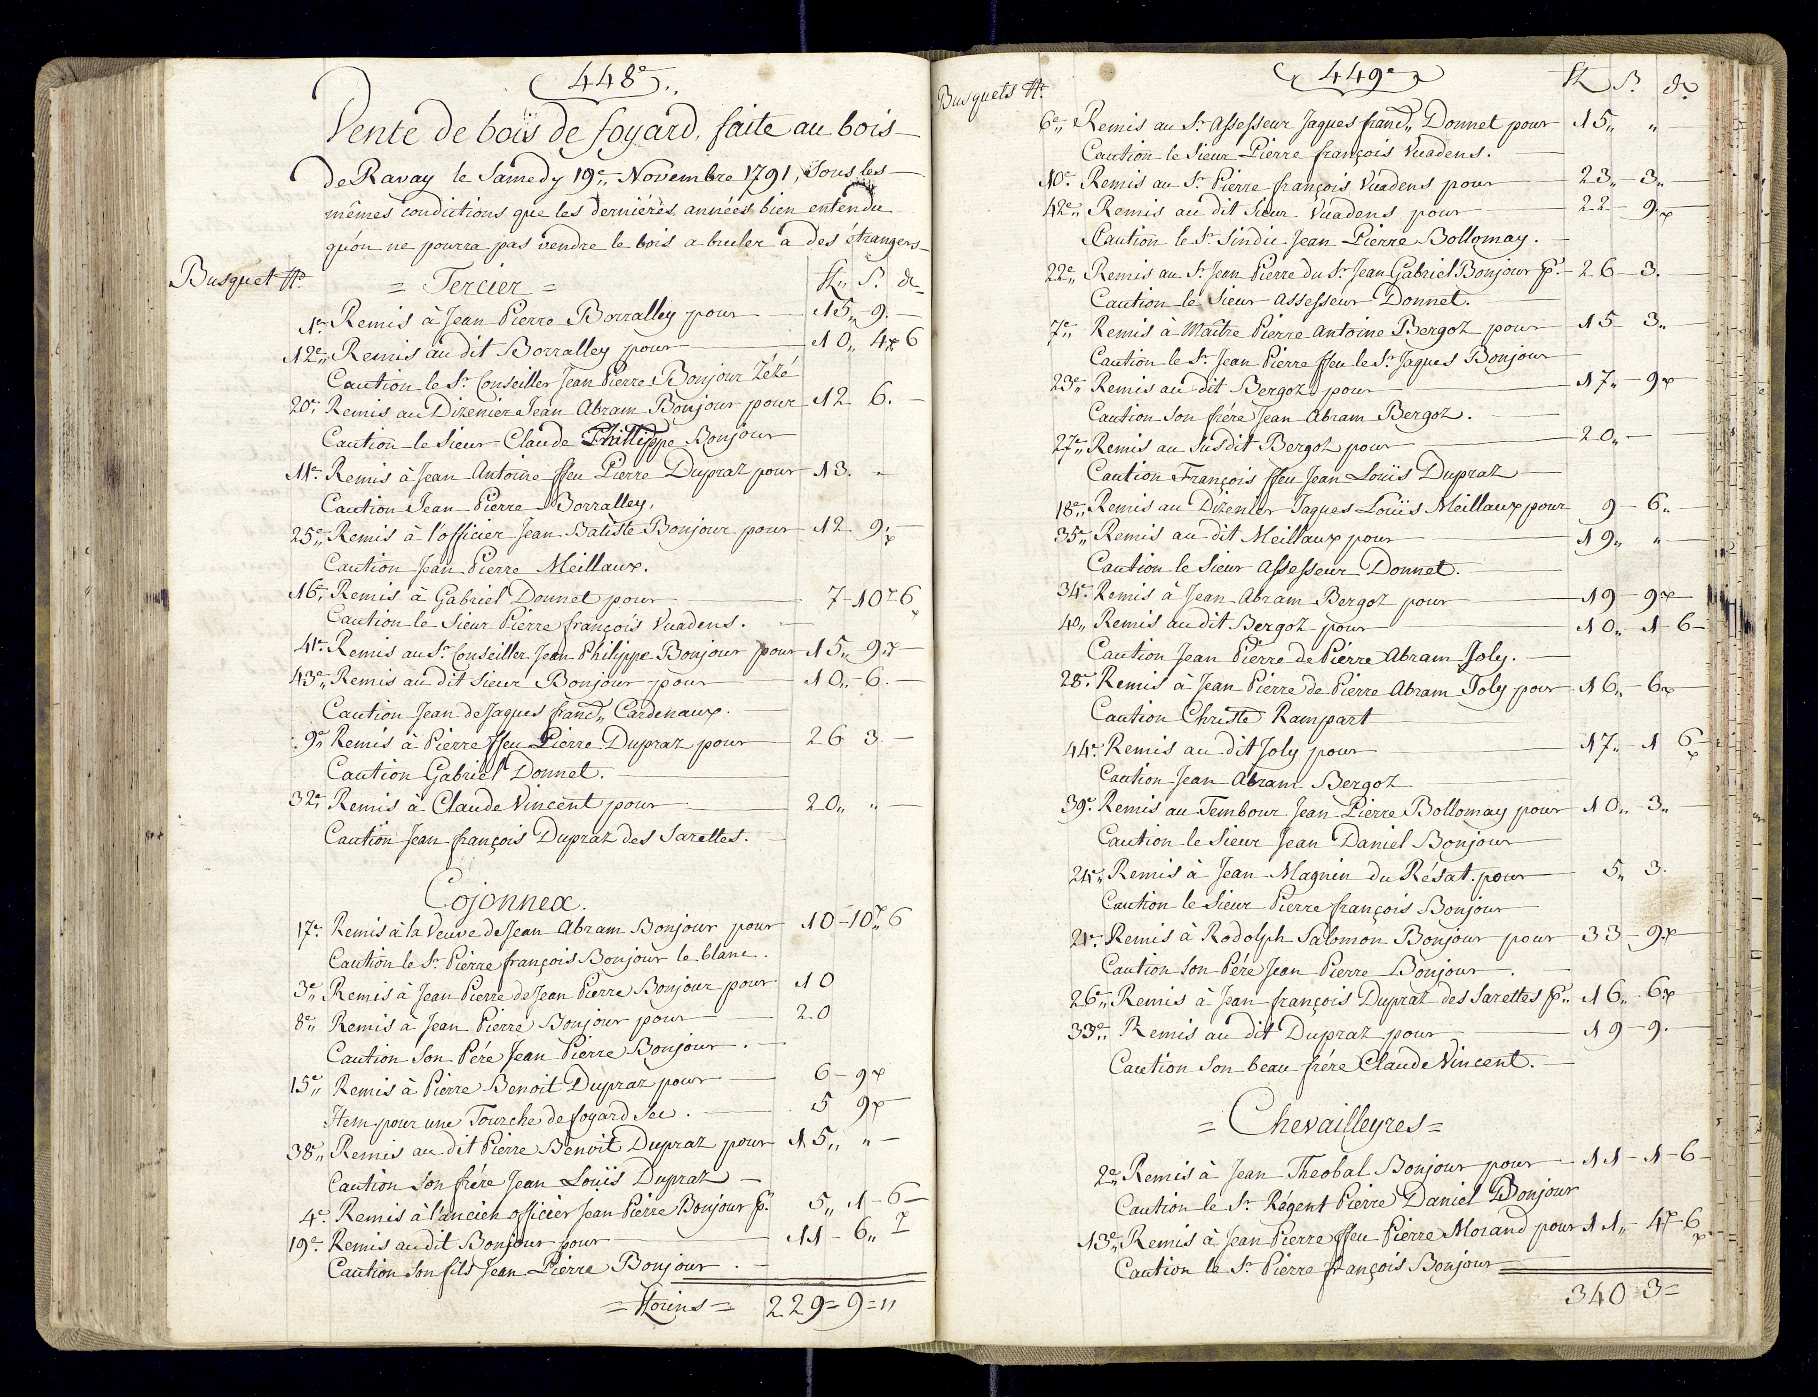 448e
Vente de bois de foyard, faite au bois
de Ravay le Samedy 19e Novembre 1791, Sous les
mêmes conditions que les derniéres années bien entendu
qu'on ne pourra pas vendre le bois a bruler à des étrangers
Busquet No
= Tercier = fl. S. d.
1e Remis à Jean Pierre Borralley pour 15 9
12e Remis au dit Borralley pour 10 4 6
Caution le Sr Conseiller Jean Pierre Bonjour Zézé
20e Remis au Dizenier Jean Abram Bonjour pour 12 6
Caution le Sieur Claude Phillippe Bonjour
11e Remis à Jean Antoine ffeu Pierre Dupraz pour 13
Caution Jean Pierre Borralley.
25e Remis à l'officier Jean Batiste Bonjour pour 12 9
Caution Jean Pierre Meillaux.
16e Remis à Gabriel Donnet pour 7 10 6
Caution le Sieur Pierre françois Vuadens.
41e Remis au Sr Conseiller Jean Philippe Bonjour pour 15 9
43e Remis au dit Sieur Bonjour pour 10 6
Caution Jean de Jaques franç. Cardenaux.
9e Remis à Pierre ffeu Pierre Dupraz pour 26 3
Caution Gabriel Donnet.
32e Remis à Claude Vincent pour 20 "
Caution Jean françois Dupraz des Sarettes.
Cojonnex.
17e Remis à la Veuve de Jean Abram Bonjour pour 10 10 6
Caution le Sr Pierre françois Bonjour le blanc.
3e Remis à Jean Pierre de Jean Pierre Bonjour pour 10
8e Remis à Jean Pierre Bonjour pour 20
Caution Son Pére Jean Pierre Bonjour.
15e Remis à Pierre Benoit Dupraz pour 6 9
Item pour une Tourche de foyard Sec. 5 9
38e Remis au dit Pierre Benoit Dupraz pour 15 "
Caution Son frére Jean Louïs Dupraz
4e Remis à l'ancien officier Jean Pierre Bonjour p. 5 1 6
19e Remis au dit Bonjour pour 11 6
Caution Son fils Jean Pierre Bonjour.
= florins = 229 = 9 = "
449e
Busquets No fl S. d.
6e Remis au Sr Assesseur Jaques franç. Donnet pour 15 "
Caution le Sieur Pierre françois Vuadens.
10e Remis au Sr Pierre françois Vuadens pour 23 3
42e Remis au dit Sieur Vuadens pour 22 9
Caution le Sr Sindic Jean Pierre Bollomay.
22e Remis au Sr Jean Pierre du Sr Jean Gabriel Bonjour p. 26 3
Caution le Sieur assesseur Donnet.
7e Remis à Maître Pierre Antoine Bergoz pour 15 3
Caution le Sr Jean Pierre ffeu le Sr Jaques Bonjour
23e Remis au dit Bergoz pour 17 9
Caution Son frére Jean Abram Bergoz.
27e Remis au Susdit Bergoz pour 20
Caution François ffeu Jean Louïs Dupraz
18e Remis au Dizenier Jaques Louïs Meillaux pour 9 6
35e Remis au dit Meillaux pour 19 "
Caution le Sieur Assesseur Donnet.
34e Remis à Jean Abram Bergoz pour 19 9
40 Remis au dit Bergoz pour 10 1 6
Caution Jean Pierre de Pierre Abram Joly.
28e Remis à Jean Pierre de Pierre Abram Joly pour 16 6
Caution Christe Rampart
44e Remis au dit Joly pour 17 1 6
Caution Jean Abram Bergoz
39e Remis au Tembour Jean Pierre Bollomay pour 10 3
Caution le Sieur Jean Daniel Bonjour
24e Remis à Jean Magnin du Résat pour 5 3
Caution le Sieur Pierre françois Bonjour
21e Remis à Rodolph Salomon Bonjour pour 33 9
Caution Son Pére Jean Pierre Bonjour.
26e Remis à Jean françois Dupraz des Sarettes p. 16 6
33e Remis au dit Dupraz pour 19 9
Caution Son beau frére Claude Vincent.
= Chevailleyres =
2e Remis à Jean Theobal Bonjour pour 11 1 6
Caution le Sr Régent Pierre Daniel Bonjour
13e Remis à Jean Pierre ffeu Pierre Morand pour 11 4 6
Caution le Sr Pierre françois Bonjour
340 3 =